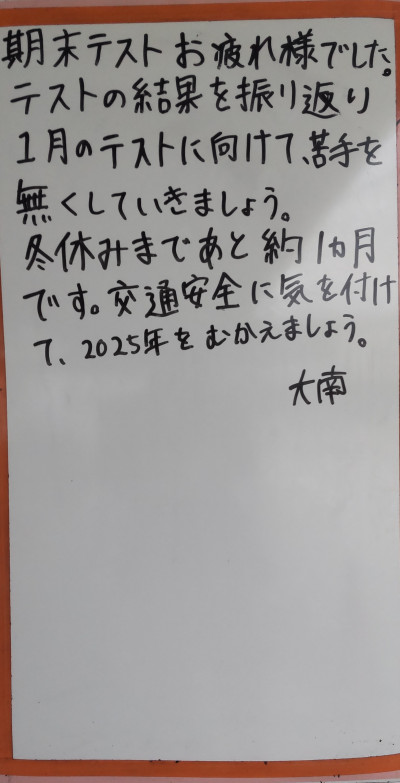 期末テストお疲れ様でした。
テストの結果を振り返り
1月のテストに向けて、苦手を
無くしていきましょう。
冬休みまであと約1カ月
です。交通安全に気を付け
て、2025年をむかえましょう。
大南